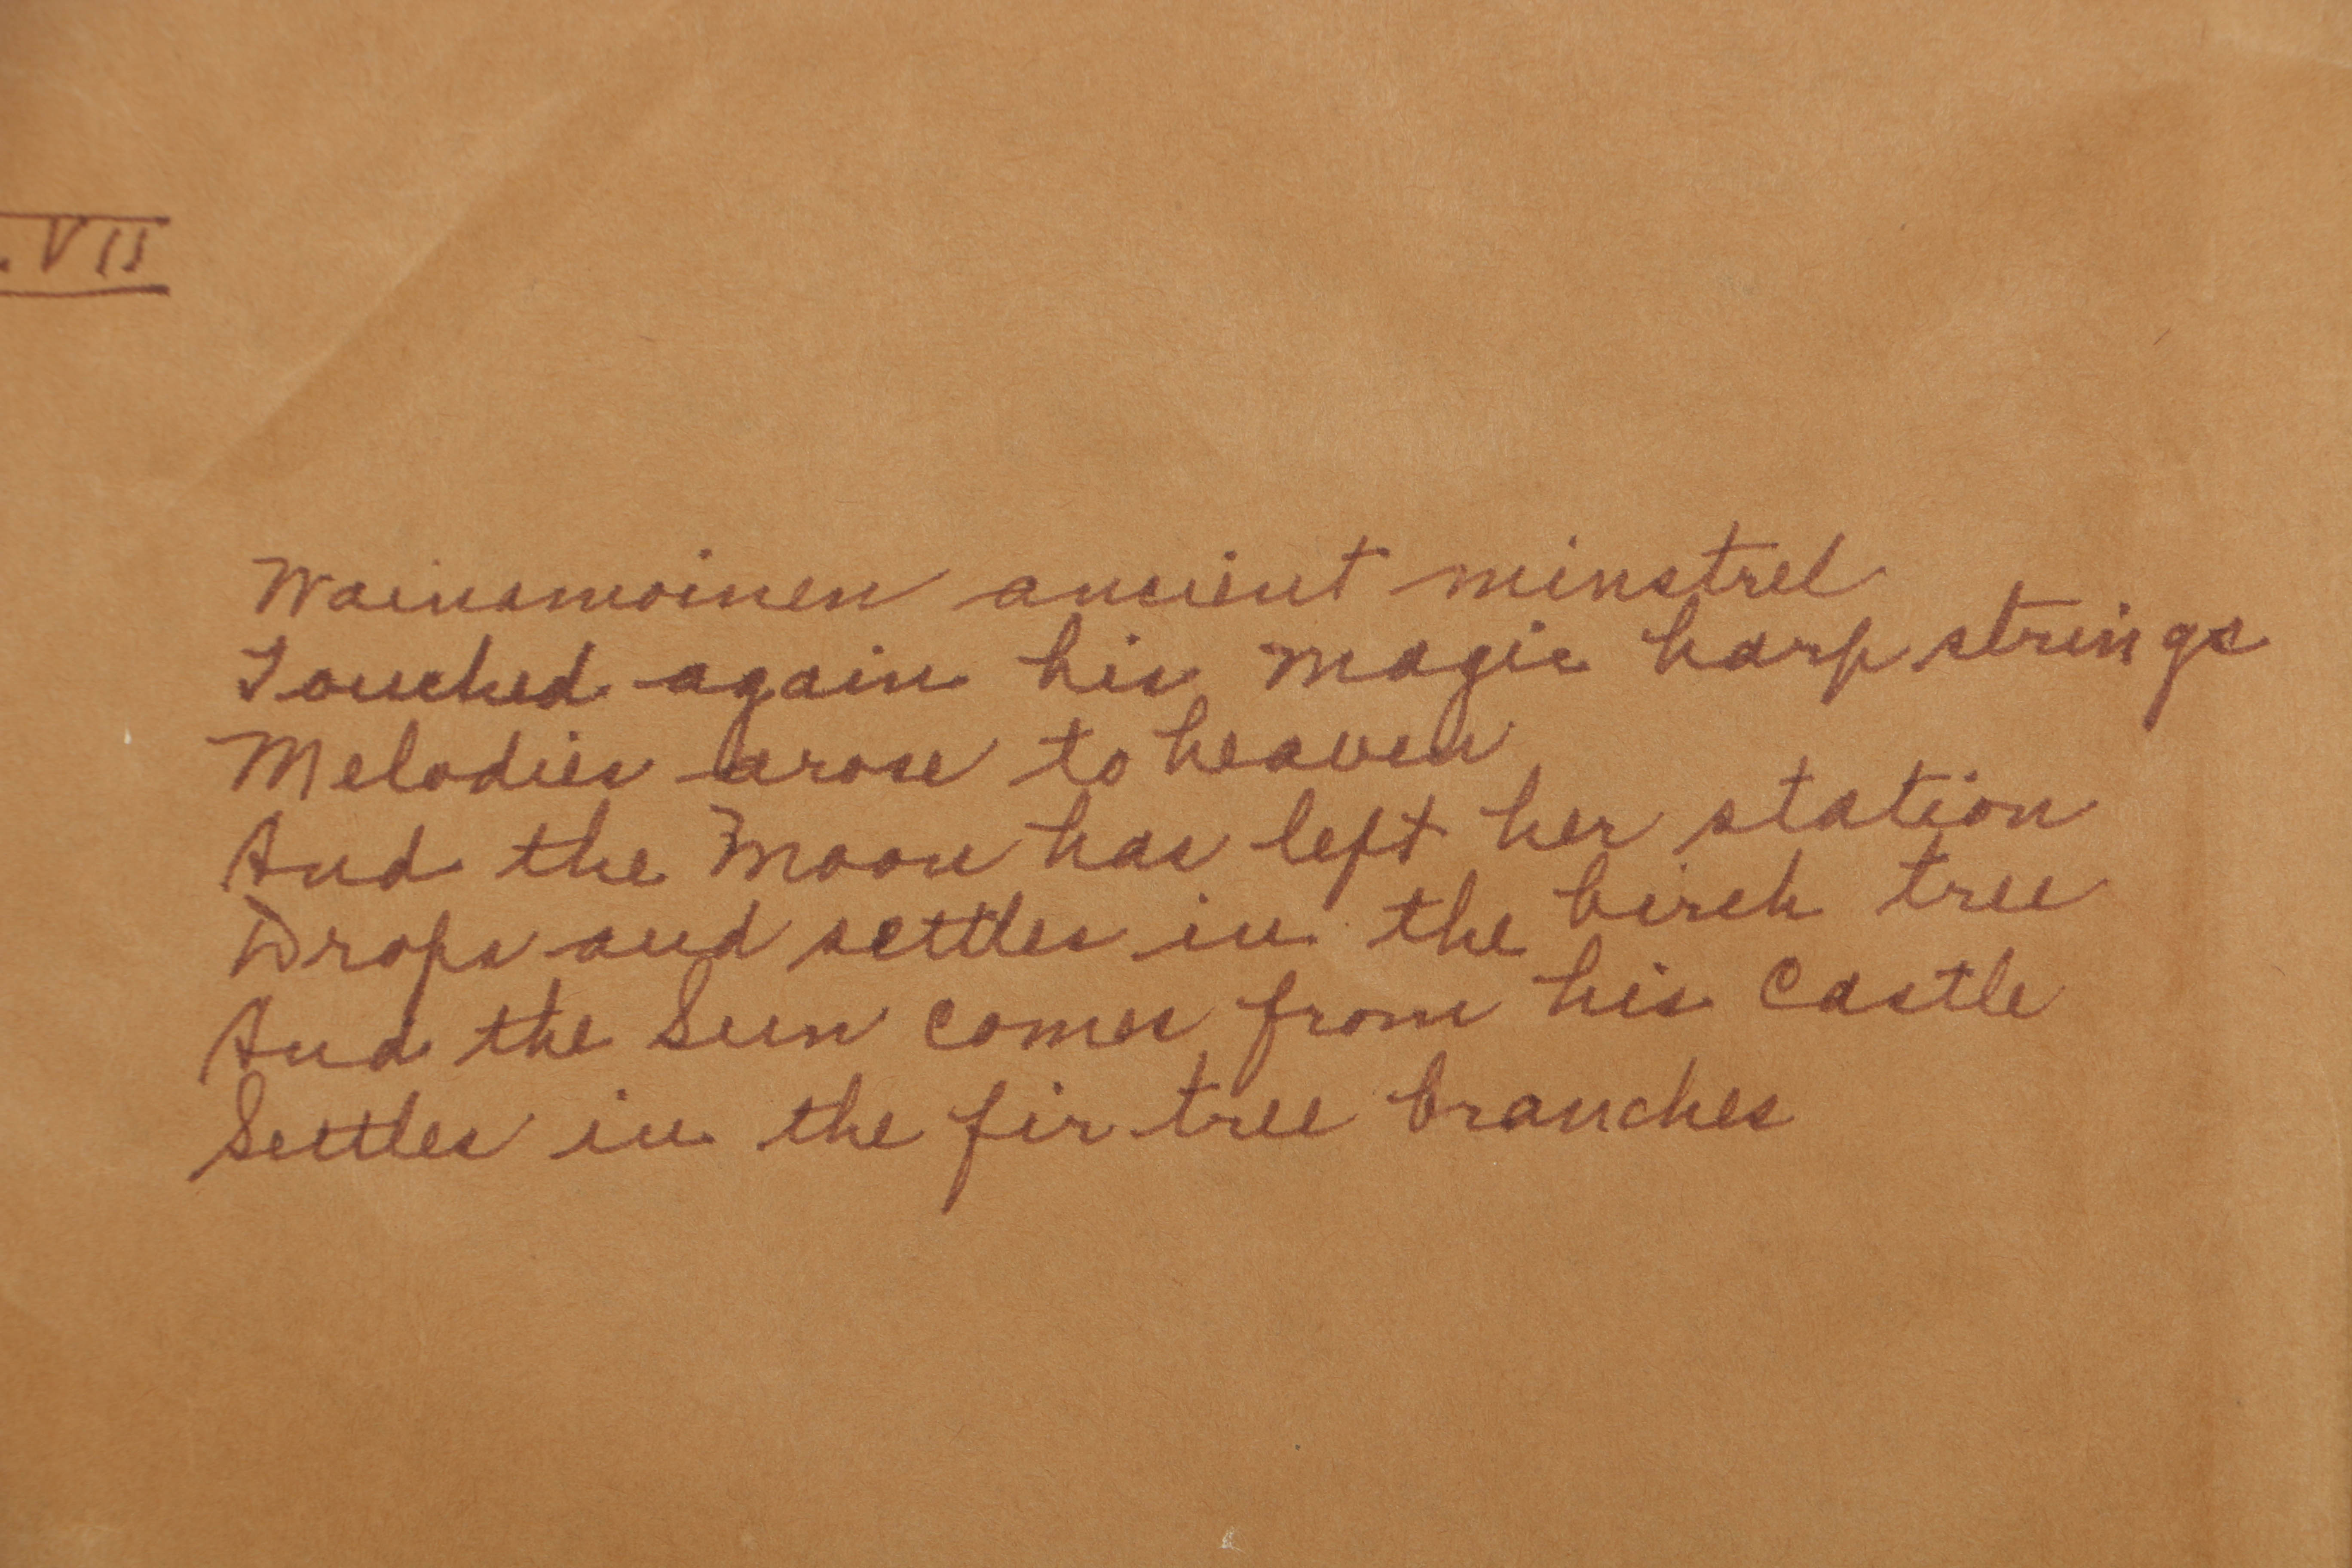 .VII
Wainamoinen ancient minstrel
Touched again his magic harp strings
Melodies arose to heaven
And the Moon has left her station
Drops and settles in the birch tree
And the Sun comes from his Castle
Settles in the fir tree branches